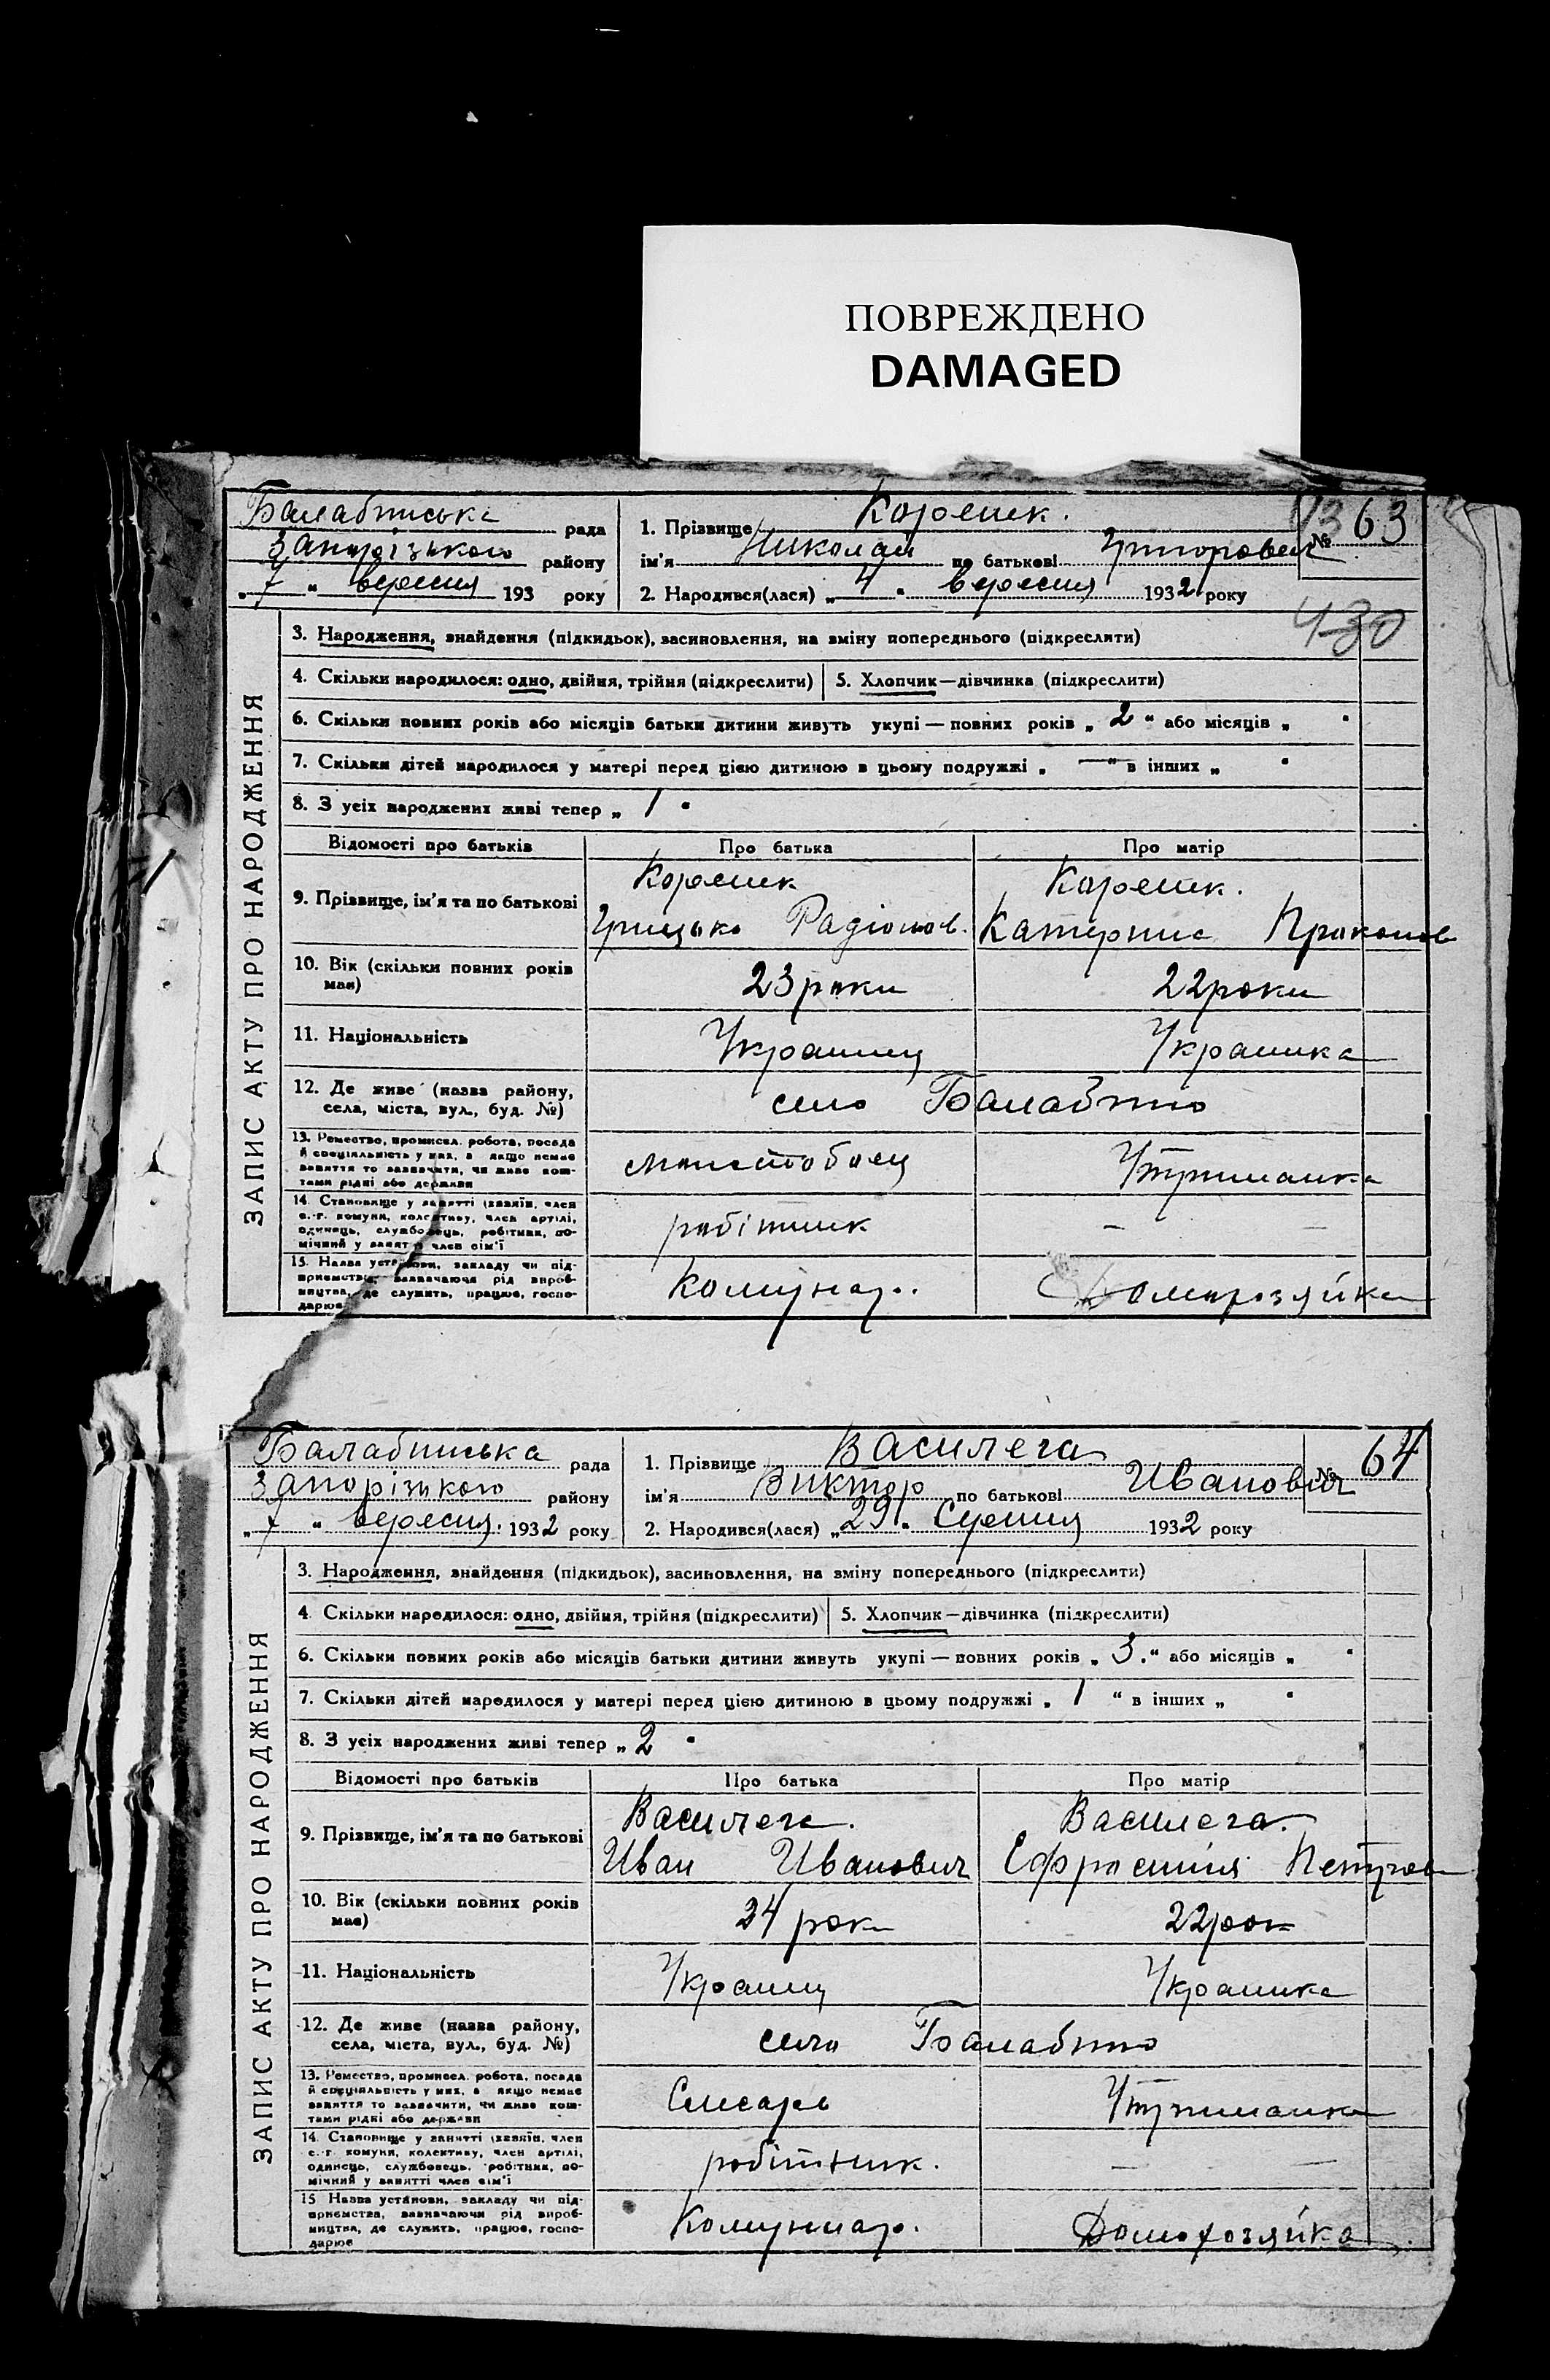 ПОВРЕЖДЕНО
DAMAGED
Балабинська рада
Запорізького району
„ 7 “ вересня 193 року
1. Прізвище Кореник.
ім'я Николай по батькові Григорович
№ 63
2. Народився(лася) „ 4 “ вересня 1932 року
430
ЗАПИС АКТУ ПРО НАРОДЖЕННЯ
3. Народження, знайдення (підкидьок), засиновлення, на зміну попереднього (підкреслити)
4. Скільки народилося: одно, двійня, трійня (підкреслити) 5. Хлопчик—дівчинка (підкреслити)
6. Скільки повних років або місяців батьки дитини живуть укупі — повних років „ 2 “ або місяців „ “
7. Скільки дітей народилося у матері перед цією дитиною в цьому подружжі „ — “ в інших „ “
8. З усіх народжених живі тепер „ 1 “
Відомості про батьків Про батька Про матір
9. Прізвище, ім'я та по батькові
Кореник Кореник.
Грицько Радіонов. Катерина Прокопов
10. Вік (скільки повних років має)
23 роки 22 роки
11. Національність Украинец Украинка
12. Де живе (назва району,
села, міста, вул., буд. №)
село Балабино
13. Ремество, промисел. робота, посада
й спеціяльність у них, а якщо немає
заняття то зазначити, чи живе кош-
тами рідні або держави
Утриманка
14. Становище у занятті (хазяїн, член
с.-г. комуни, колективу, член артілі,
одинець, службовець, робітник, по-
мічний у занятті член сім'ї
робітник — —
15. Назва установи, закладу чи під-
приємства, зазначаючи рід вироб-
ництва, де служить, працює, госпо-
дарює
Комунар. Домохозяйка
Балабинська рада
Запорізького району
„ 7 “ вересня. 1932 року
1. Прізвище Василега
ім'я Виктор по батькові Иванович
№ 64
2. Народився(лася) „ 29 “ Серпня 1932 року
ЗАПИС АКТУ ПРО НАРОДЖЕННЯ
3. Народження, знайдення (підкидьок), засиновлення, на зміну попереднього (підкреслити)
4. Скільки народилося: одно, двійня, трійня (підкреслити) 5. Хлопчик—дівчинка (підкреслити)
6. Скільки повних років або місяців батьки дитини живуть укупі — повних років „ 3. “ або місяців „ “
7. Скільки дітей народилося у матері перед цією дитиною в цьому подружжі „ 1 “ в інших „ “
8. З усіх народжених живі тепер „ 2 “
Відомості про батьків Про батька Про матір
9. Прізвище, ім'я та по батькові
Василега. Василега.
Иван Иванович Ефросинія Петров
10. Вік (скільки повних років має)
24 роки 22 рок
11. Національність Украинец Украинка
12. Де живе (назва району,
села, міста, вул., буд. №)
село Балабино
13. Ремество, промисел. робота, посада
й спеціяльність у них, а якщо немає
заняття то зазначити, чи живе кош-
тами рідні або держави
Слесарь Утриманка
14. Становище у занятті (хазяїн, член
с.-г. комуни, колективу, член артілі,
одинець, службовець, робітник, по-
мічний у занятті член сім'ї
робітник. — —
15 Назва установи, закладу чи під-
приємства, зазначаючи рід вироб-
ництва, де служить, працює, госпо-
дарює
Комунар. Домохозяйка